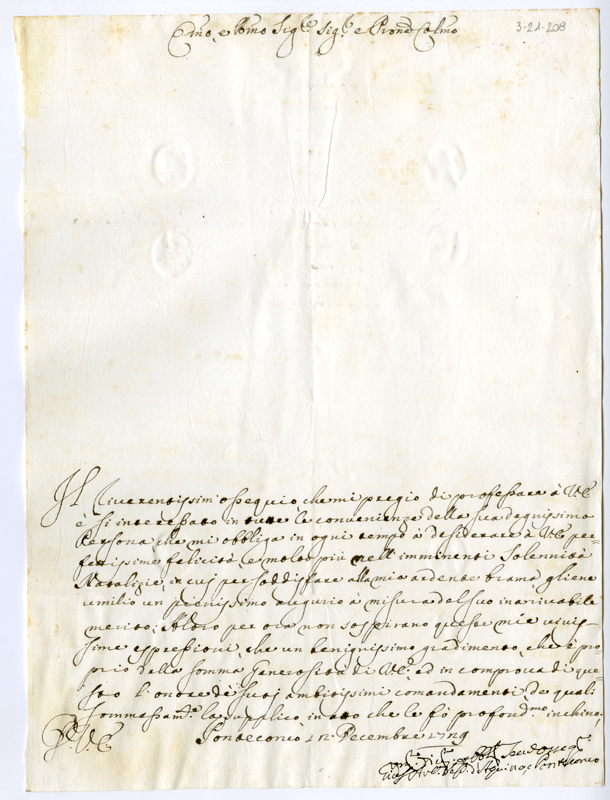 3-21-208
Emo, e Rmo Sigre. Sigre. e Prone Colmo
Il riverentissim'ossequio che mi pregio di professare à V.E.
è si interessato in tutte le convenienze della sua degnissima
Persona, che mi obbliga in ogni tempo à desiderare à V.E. per-
fettissime felicità, e molto più nell'imminenti Solennità
Natalizie, in cui per soddisfare alla mia ardente brama gliene
umilio un pienissimo augurio à misura del suo inarivabile
merito; Altro per ora non sospirano queste mie vivis-
sime espressioni, che un benignissimo gradimento, che è pro
prio della somma Generosità di V.E., ed in comprova di que-
sto l'onore de suoi ambitissimi comandamenti, de quali
sommassamte. la supplico, in atto che le fò profondmo. inchino.
Pontecorvo 12 Decembre 1729
V. E.
d'Aquino, e Pontecorvo